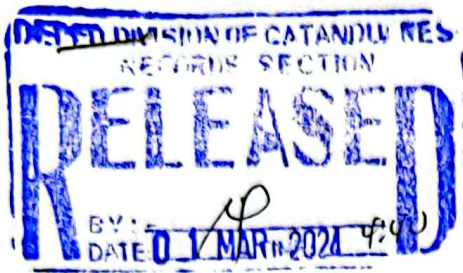 DEPED DIVISION OF CATANDUANES
RECORDS SECTION
RELEASED
BY:
DATE 01 MAR 2024 4:40